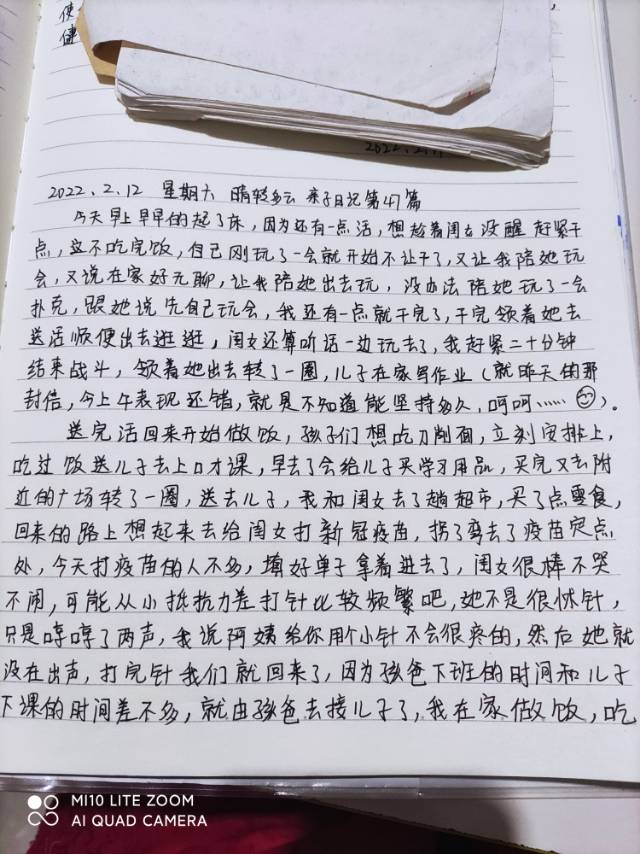 使
健
2022.2.12 星期六 晴转多云 亲子日记第47篇
今天早上早早的起了床，因为还有一点活，想趁着闺女没醒赶紧干
点，这不吃完饭，自己刚玩了一会就开始不让干了，又让我陪她玩
会，又说在家好无聊，让我陪她出去玩，没办法陪她玩了一会
扑克，跟她说先自己玩会，我还有一点就干完了，干完领着她去
送活顺便出去逛逛，闺女还算听话一边玩去了，我赶紧二十分钟
结束战斗，领着她出去转了一圈，儿子在家写作业（就昨天的那
封信，今上午表现还错，就是不知道能坚持多久，呵呵……）。
送完活回来开始做饭，孩子们想吃刀削面，立刻安排上，
吃过饭送儿子去上口才课，早去了会给儿子买学习用品，买完又去附
近的广场转了一圈，送去儿子，我和闺女去了趟超市，买了点零食，
回来的路上想起来去给闺女打新冠疫苗，拐了弯去了疫苗定点
处，今天打疫苗的人不多，填好单子拿着进去了，闺女很棒不哭
不闹，可能从小抵抗力差打针比较频繁吧，她不是很怵针，
只是哼哼了两声，我说阿姨给你用个小针不会很疼的，然后她就
没在出声，打完针我们就回来了，因为孩爸下班的时间和儿子
下课的时间差不多，就由孩爸去接儿子了，我在家做饭，吃
MI10 LITE ZOOM
AI QUAD CAMERA